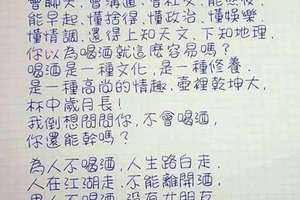 會聊天.會溝通.會社交.能熬夜
能早起.懂捨得.懂政治.懂娛樂.
懂情調.還得上知天文.下知地理.
你以為喝酒就這麼容易嗎?
喝酒是一種文化,是一種修養.
是一種高尚的情趣.壺裡乾坤大,
杯中歲月長!
我倒想問問你.不會喝酒,
你還能幹嗎?
為人不喝酒,人生路白走.
人在江湖走.不能離開酒,
男人不喝酒.沒有女朋友